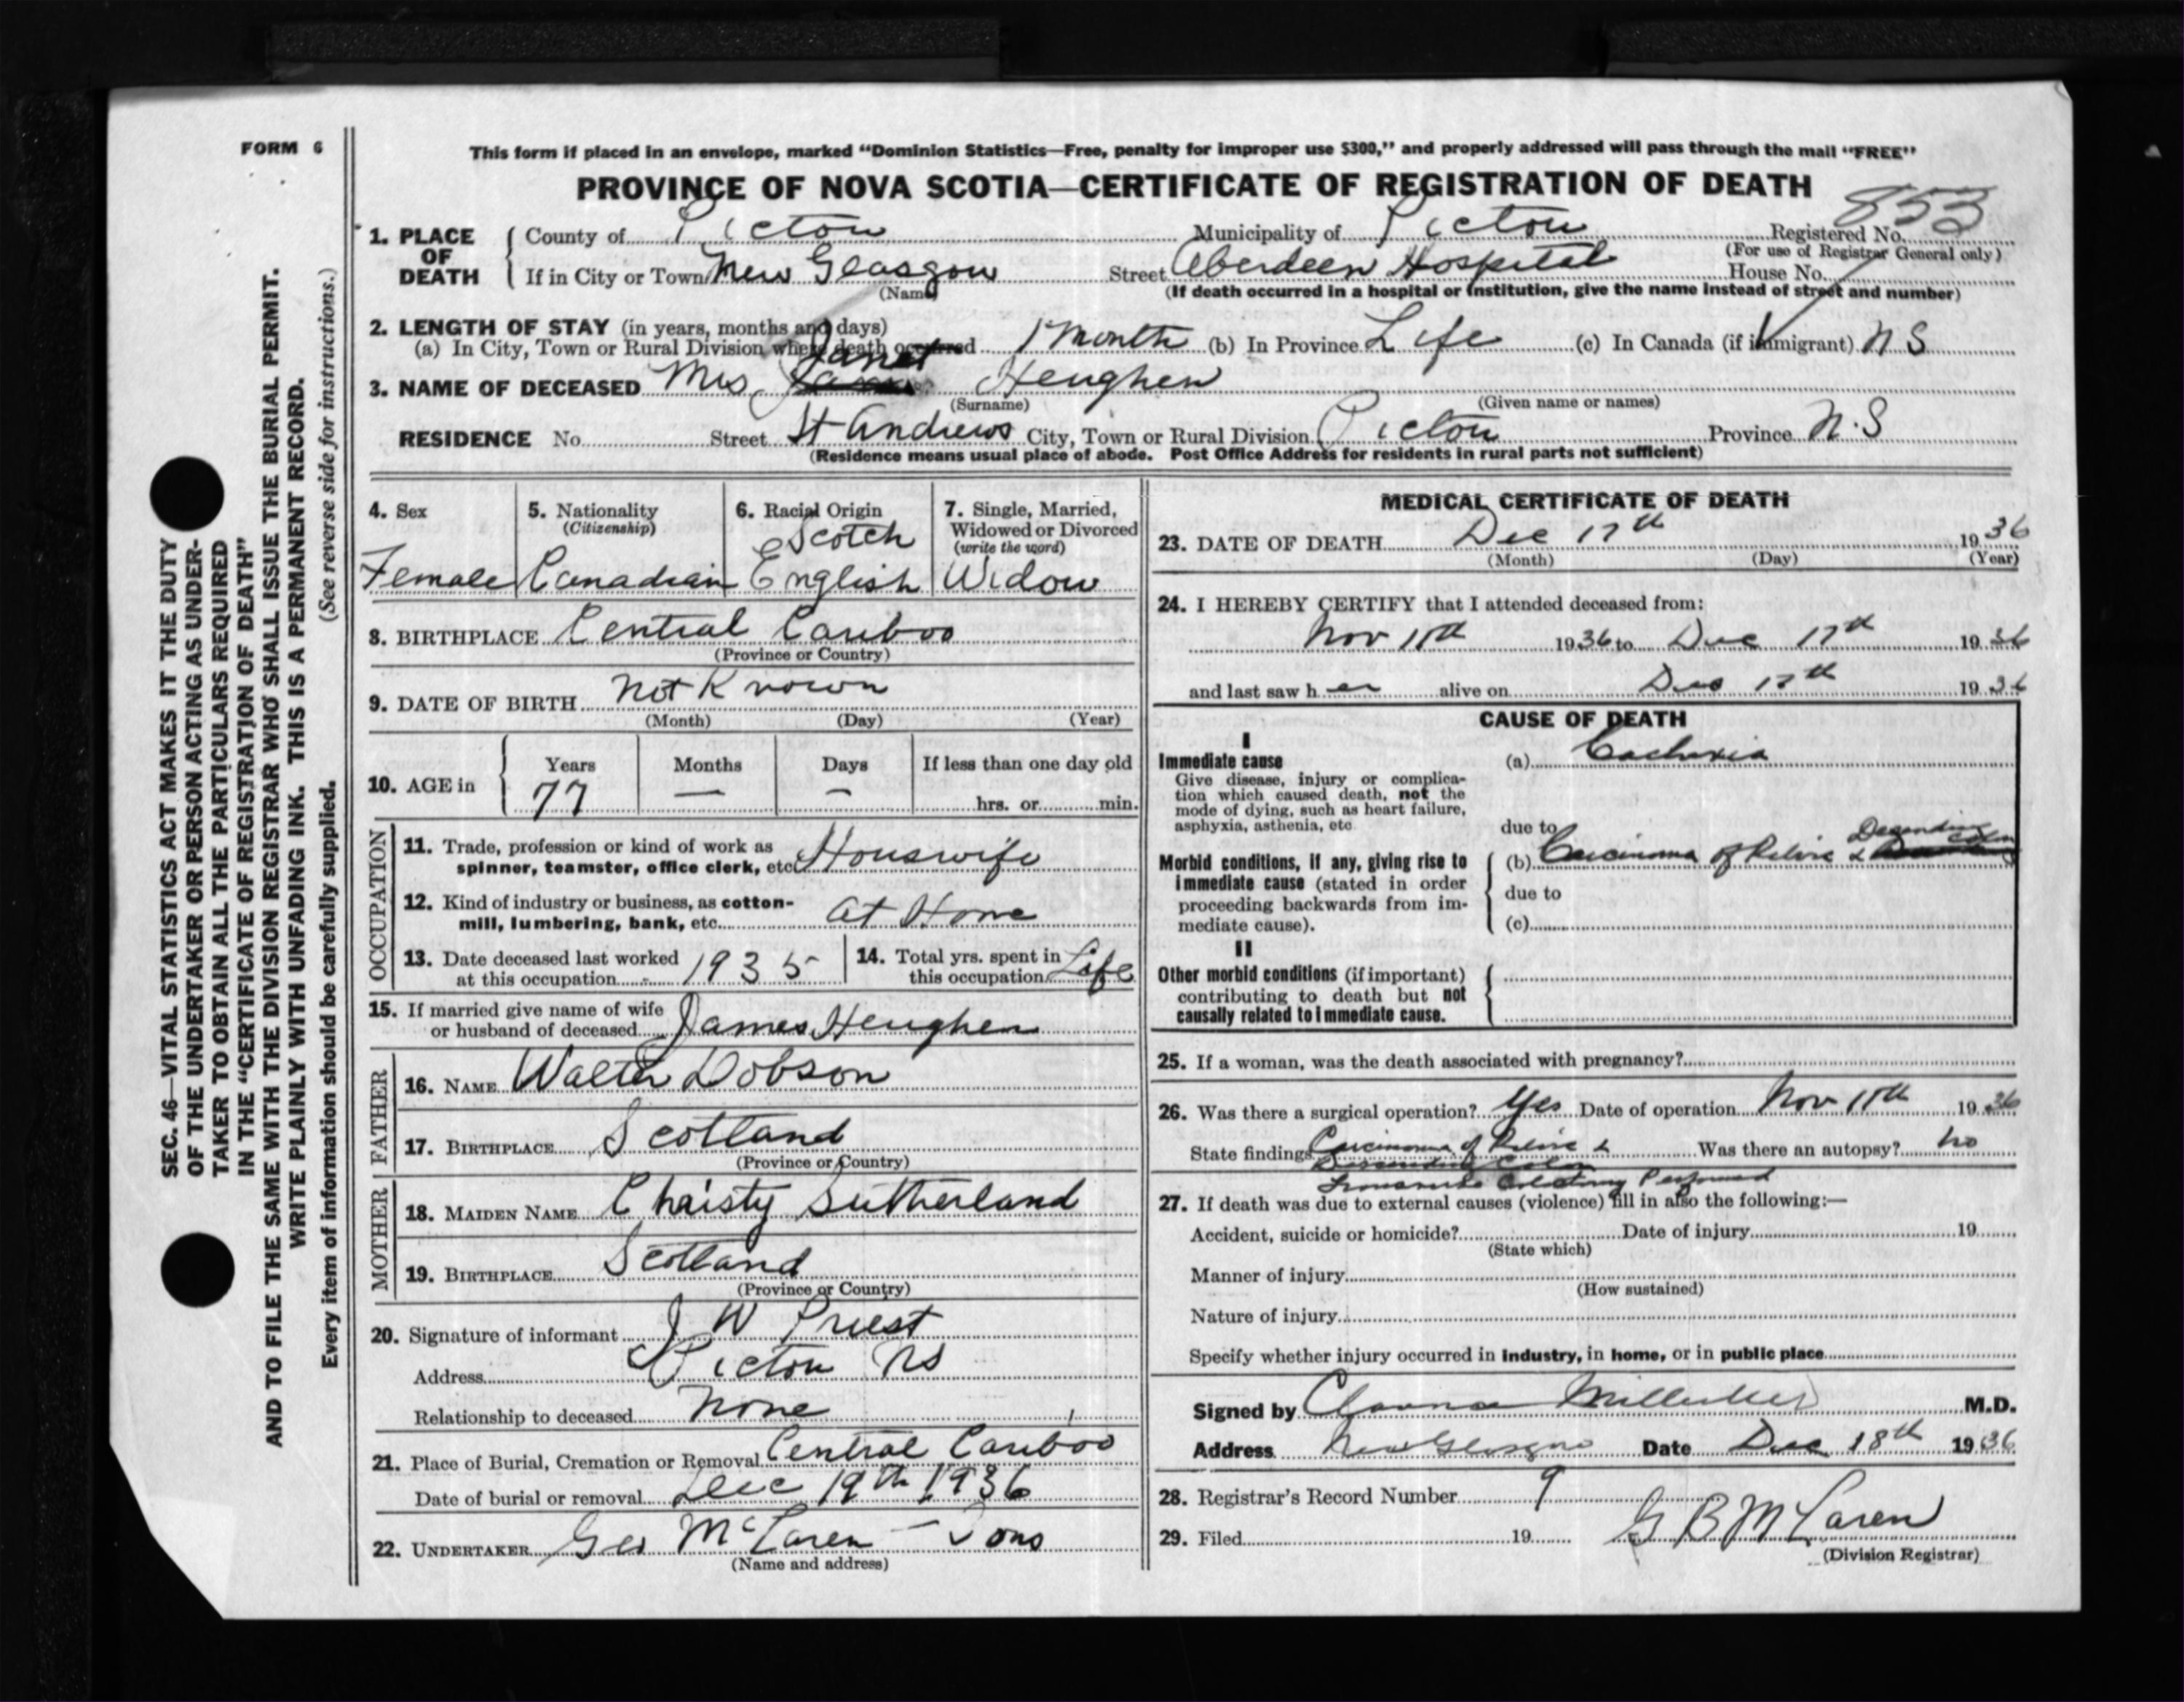 FORM 6
This form if placed in an envelope, marked “Dominion Statistics—Free, penalty for improper use $300,” and properly addressed will pass through the mail “FREE”
PROVINCE OF NOVA SCOTIA—CERTIFICATE OF REGISTRATION OF DEATH
853
1. PLACE OF DEATH County of Pictou Municipality of Pictou Registered No.
(For use of Registrar General only)
If in City or Town New Glasgow Street Aberdeen Hospital House No.
(Name) (If death occurred in a hospital or institution, give the name instead of street and number)
2. LENGTH OF STAY (in years, months and days)
(a) In City, Town or Rural Division where death occurred 1 Month (b) In Province Life (c) In Canada (if immigrant) N S
Janet
3. NAME OF DECEASED Mrs Heughen
(Surname) (Given name or names)
RESIDENCE No. Street St Andrews City, Town or Rural Division Pictou Province N.S
(Residence means usual place of abode. Post Office Address for residents in rural parts not sufficient)
4. Sex Female
5. Nationality (Citizenship) Canadian
6. Racial Origin Scotch English
7. Single, Married, Widowed or Divorced (write the word) Widow
8. BIRTHPLACE Central Cariboo
(Province or Country)
9. DATE OF BIRTH Not Known
(Month) (Day) (Year)
10. AGE in Years Months Days If less than one day old
77 — — hrs. or min.
OCCUPATION
11. Trade, profession or kind of work as
spinner, teamster, office clerk, etc. Houswife
12. Kind of industry or business, as cotton-
mill, lumbering, bank, etc. At Home
13. Date deceased last worked
at this occupation 1935
14. Total yrs. spent in
this occupation Life
15. If married give name of wife
or husband of deceased James Heughen
FATHER
16. NAME Walter Dobson
17. BIRTHPLACE Scotland
(Province or Country)
MOTHER
18. MAIDEN NAME Christy Sutherland
19. BIRTHPLACE Scotland
(Province or Country)
20. Signature of informant J W Priest
Address Pictou NS
Relationship to deceased None
21. Place of Burial, Cremation or Removal Central Cariboo
Date of burial or removal Dec 19th 1936
22. UNDERTAKER Geo McLaren — Sons
(Name and address)
MEDICAL CERTIFICATE OF DEATH
23. DATE OF DEATH Dec 17th 1936
(Month) (Day) (Year)
24. I HEREBY CERTIFY that I attended deceased from:
Nov 1936 to Dec 17th 1936
and last saw her alive on Dec 17th 1936
CAUSE OF DEATH
I
Immediate cause (a) Cachexia
Give disease, injury or complica-
tion which caused death, not the
mode of dying, such as heart failure,
asphyxia, asthenia, etc
due to
Morbid conditions, if any, giving rise to (b) Carcinoma of Pelvis & Decending Colon
immediate cause (stated in order
proceeding backwards from im-
mediate cause).
due to
(c)
II
Other morbid conditions (if important)
contributing to death but not
causally related to immediate cause.
25. If a woman, was the death associated with pregnancy?
26. Was there a surgical operation? Yes Date of operation Nov 1936
State findings Carcinoma of Pelvis & Was there an autopsy? no
Descending Colon
Performed
27. If death was due to external causes (violence) fill in also the following:—
Accident, suicide or homicide? Date of injury 19
(State which)
Manner of injury
(How sustained)
Nature of injury
Specify whether injury occurred in industry, in home, or in public place
Signed by M.D.
Address New Glasgow Date Dec 18th 1936
28. Registrar's Record Number 9
29. Filed 19 G B McLaren
(Division Registrar)
SEC. 46—VITAL STATISTICS ACT MAKES IT THE DUTY
OF THE UNDERTAKER OR PERSON ACTING AS UNDER-
TAKER TO OBTAIN ALL THE PARTICULARS REQUIRED
IN THE “CERTIFICATE OF REGISTRATION OF DEATH”
AND TO FILE THE SAME WITH THE DIVISION REGISTRAR WHO SHALL ISSUE THE BURIAL PERMIT.
WRITE PLAINLY WITH UNFADING INK. THIS IS A PERMANENT RECORD.
Every item of information should be carefully supplied. (See reverse side for instructions.)